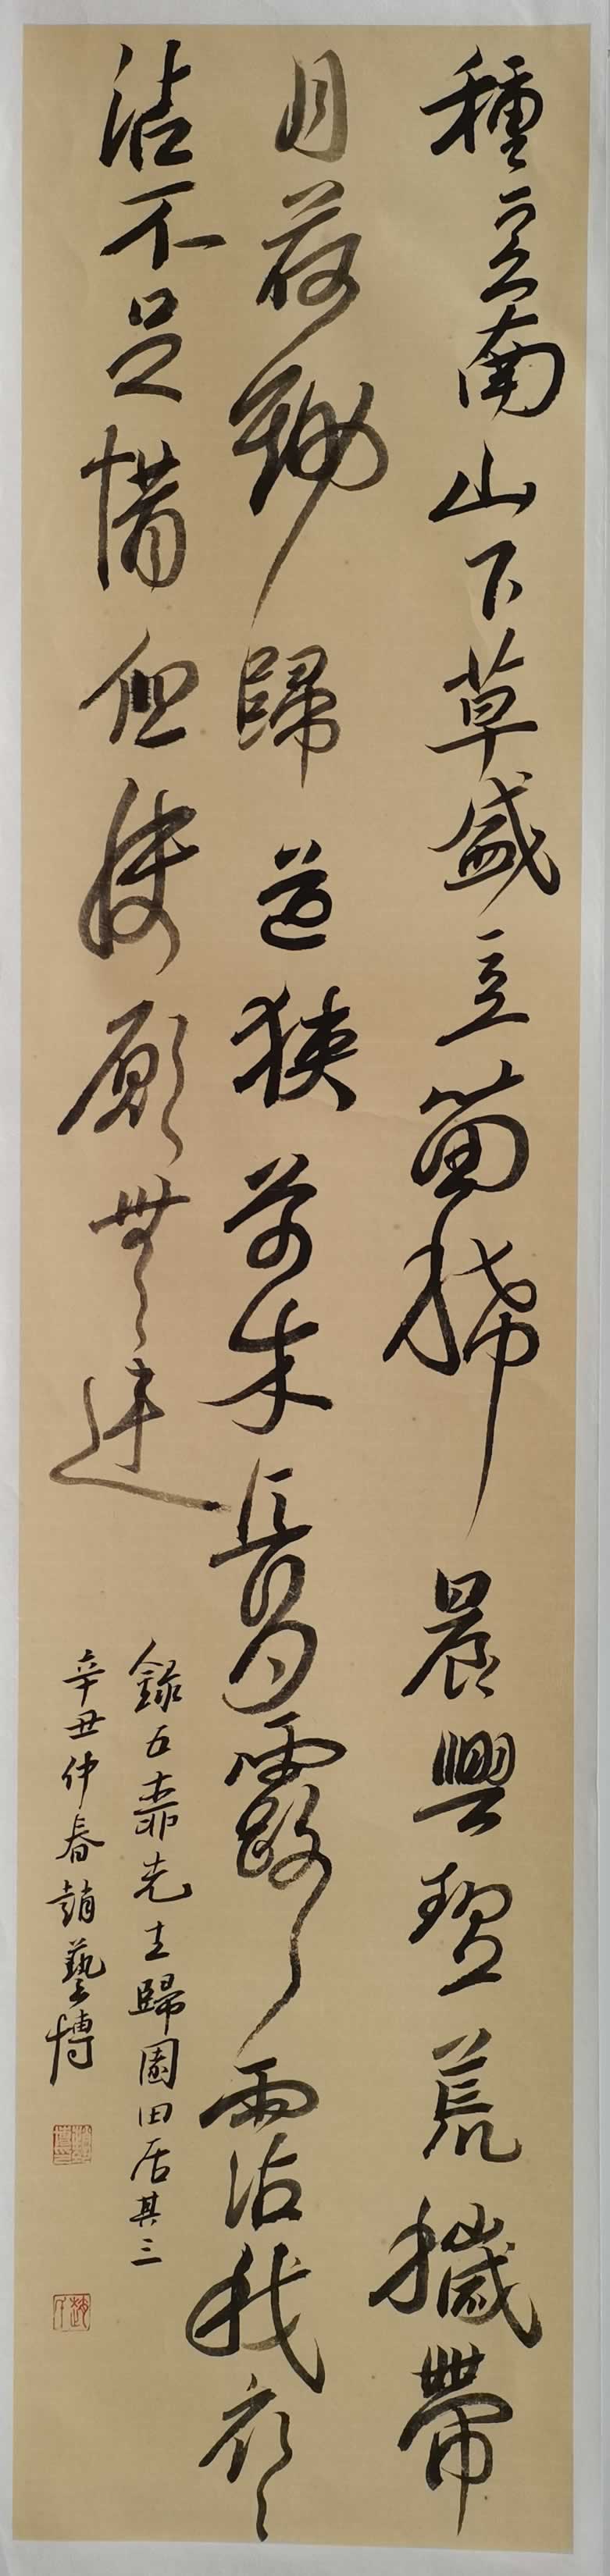 種豆南山下草盛豆苗稀晨興理荒穢帶
月荷鋤歸道狹草木長夕露霑我衣々
沾不足惜但使願無違
錄五柳先生歸園田居其三
辛丑仲春趙藝博